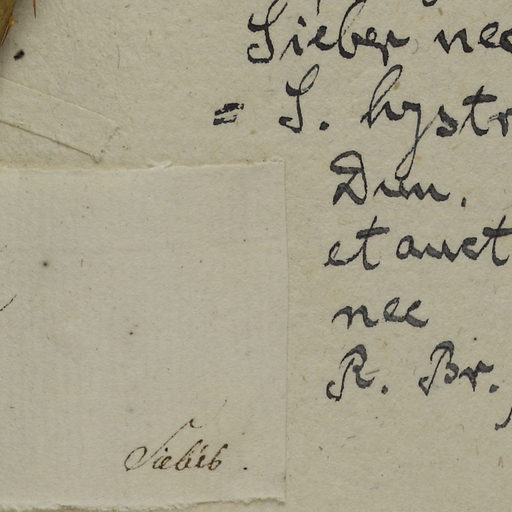 Sieber nec
= S. hystr
Dun.
et auct
nec
R. Br.
Sieber.